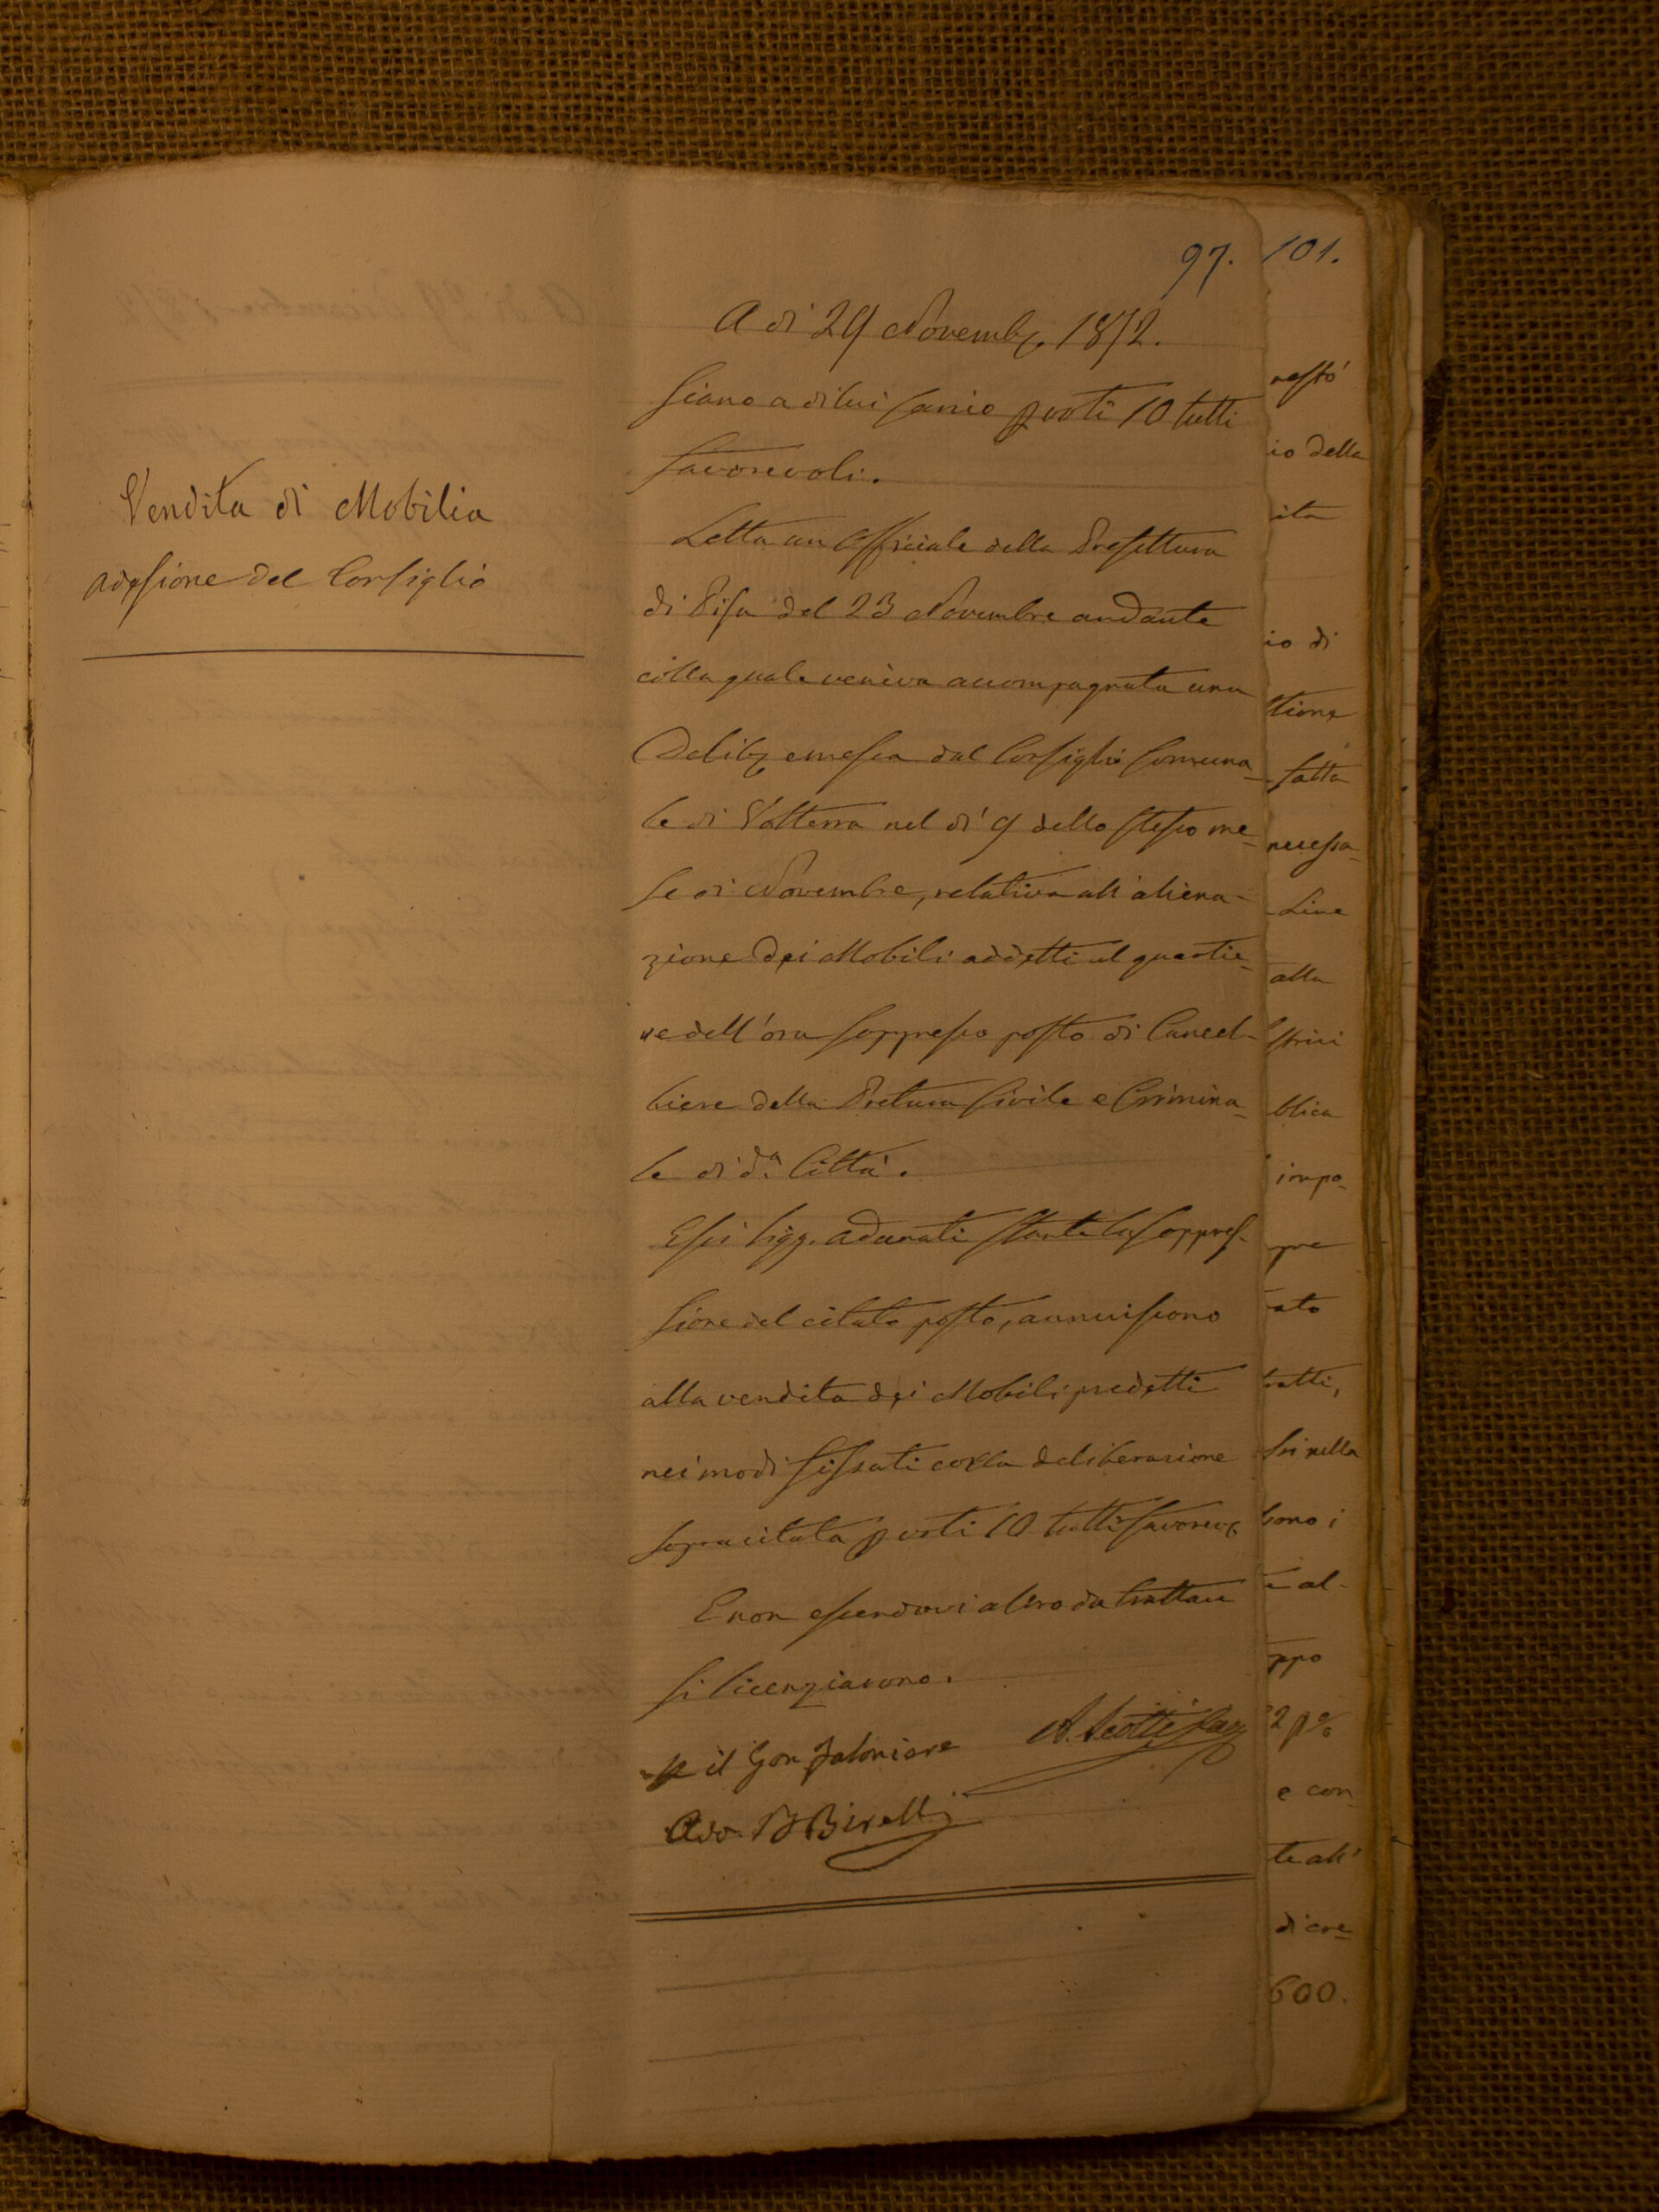 97.
A di 29 Novembre 1872.
siano a di lui carico p voti 10 tutti
favorevoli.
Vendita di Mobilia
adesione del Consiglio
Letta un Officiale della Prefettura
di Pisa del 23 Novembre andante
colla quale veniva accompagnata una
Delib emessa dal Consiglio Comuna-
le di Volterra nel di 9 dello stesso me-
se di Novembre, relativa all'aliena-
zione dei Mobili addetti al quartie-
re dell'ora soppresso posto di Cancel-
liere della Pretura Civile e Crimina-
le di da. Città.
Essi Sigg. adunati stante la soppres-
sione del citato posto, annuiscono
alla vendita dei Mobili predetti
nei modi fissati colla deliberazione
sopracitata p voti 10 tutti favorev
E non essendovi altro da trattare
si licenziarono.
p il Gonfaloniere
101.
restò
io della
ita
io di
zione
fatta
necessa-
Line
alla
blica
impo-
pre
ato
tratti,
al-
ppo
e con
te all'
di cre
600.